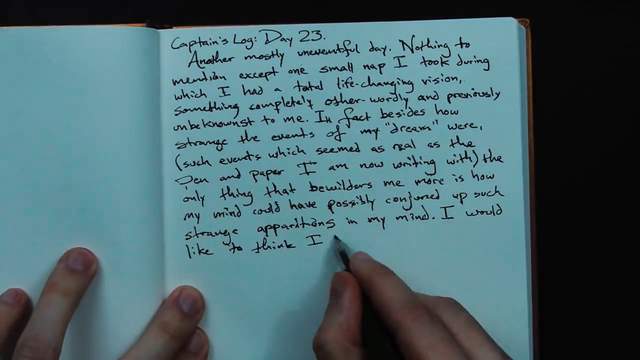 Captain's Log: Day 23.
Another mostly uneventful day. Nothing to
mention except one small nap I took during
which I had a total life-changing vision,
something completely other-wordly and previously
unbeknownst to me. In fact besides how
strange the events of my "dreams" were,
(such events which seemed as real as the
pen and paper I am now writing with) the
only thing that bewilders me more is how
my mind could have possibly conjured up such
strange apparitions in my mind. I would
like to think I